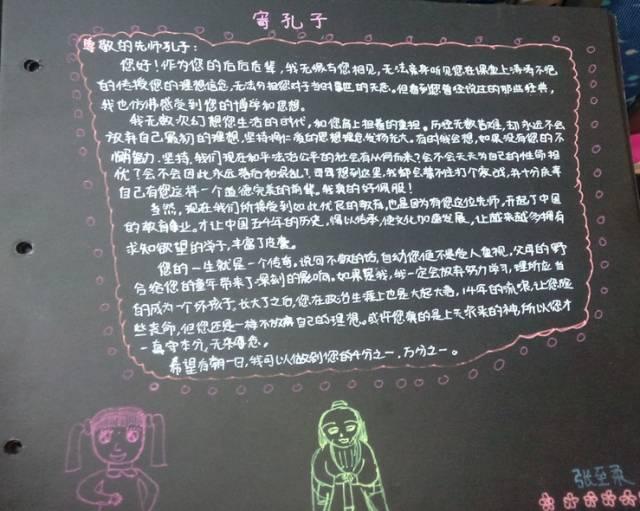 寄孔子
尊敬的先师孔子：
您好！作为您的后后后辈，我无缘与您相见，无法亲身听见您在课堂上滔滔不绝
的传授您的理想信念，无法分担您对于当时事世的无奈。但看到您曾经说过的那些经典，
我也仿佛感受到您的博学和思想。
我无数次幻想您生活的时代，和您肩上担着的重担。历经无数苦难，却永远不会
放弃自己最初的理想，坚持将仁爱的思想理念发扬光大。有时我会想，如果没有您的不
懈努力、坚持，我们现在和平法治公平的社会有从何而来？会不会天天为自己的性命担
忧？会不会因此永远落后和混乱？每每想到这里，我都会禁不住打个寒战，并十分庆幸
自己有您这样一个道德完美的前辈。我真的好佩服！
当然，现在我们所接受到如此优良的教育，也是因为有您这位先师，开起了中国
的教育事业。才让中国五千年的历史，得以传承，使文化加速发展，让越来越多拥有
求知欲望的学子，丰富了皮囊。
您的一生就是一个传奇。说句不敬的话，自幼您便不受人重视，父母的野
合给您的童年带来了深刻的影响。如果是我，我一定会放弃努力学习，理所应当
的成为一个坏孩子。长大了之后，您在政治生涯上也是大起大落，14年的流浪，让您险
些丧命，但您还是一样不放弃自己的理想。或许您真的是上天派来的神，所以您才
一直守本分，无来倦怠。
希望有朝一日，我可以做到您的4分之一，万分之一。
张至柔